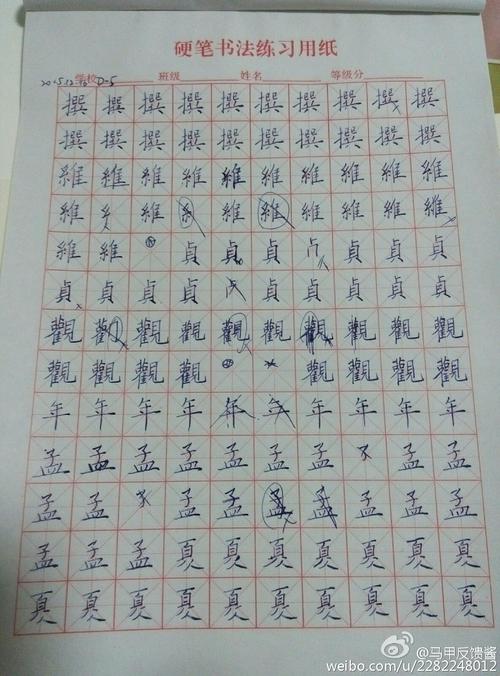 硬笔书法练习用纸
学校 D-5 班级 姓名 等级分
撰 撰 撰 撰 撰 撰 撰 撰 撰 撰
撰 撰 撰 撰 撰 撰 撰 撰 撰 撰
維 維 維 維 維 維 維 維 維 維
維 維 維 維 維 維 維 維
維 維 貞 貞 貞 貞 貞 貞
貞 貞 貞 貞 貞 貞 貞 貞 貞
觀 觀 觀 觀 觀 觀 觀 觀 觀 觀
觀 觀 觀 觀 觀 觀 觀 觀
年 年 年 年 年 年 年 年 年 年
孟 孟 孟 孟 孟 孟 孟 孟 孟
孟 孟 孟 孟 孟 孟 孟 孟 孟
孟 孟 孟 夏 夏 夏 夏 夏 夏 夏
夏 夏 夏 夏 夏 夏 夏 夏 夏 夏
@马甲反馈酱
weibo.com/u/2282248012